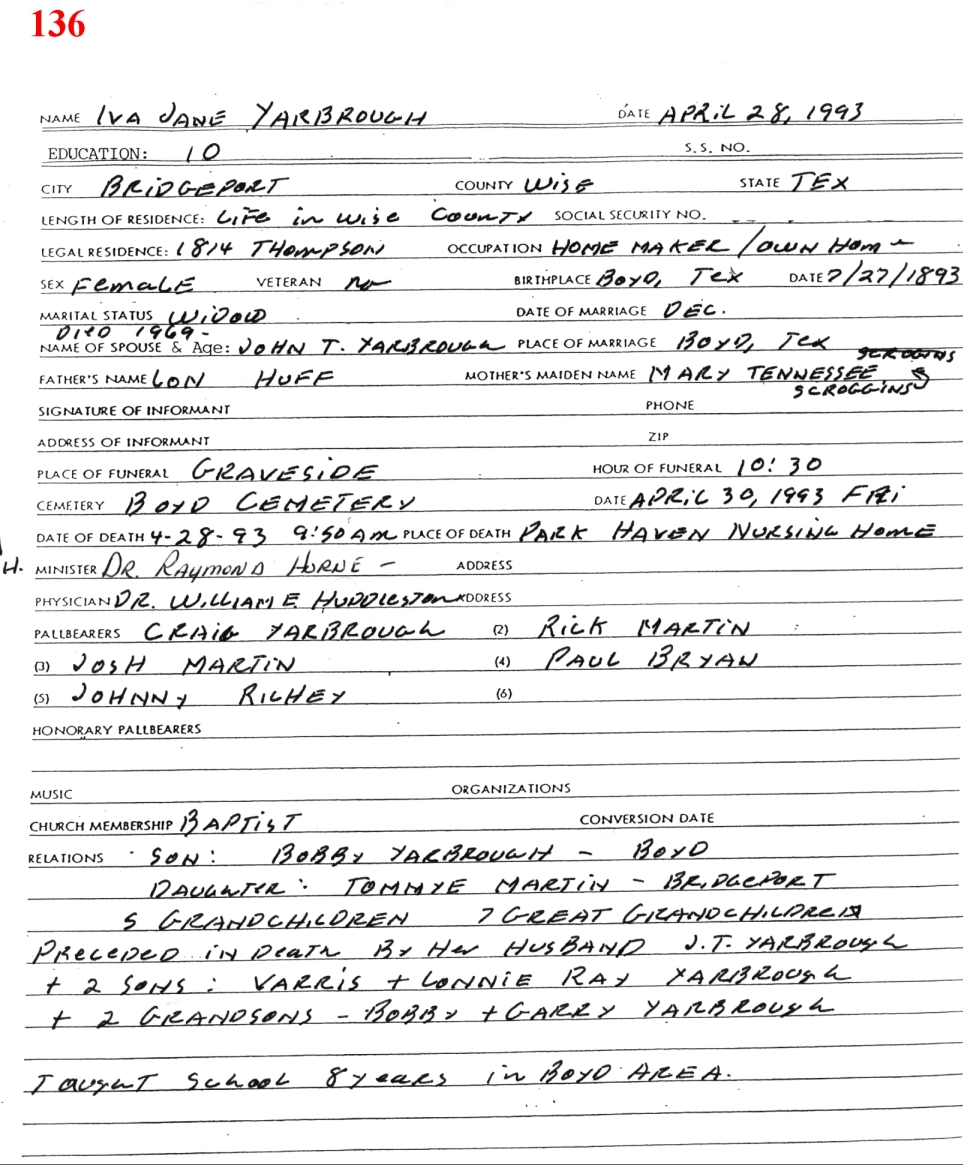 136
NAME IVA JANE YARBROUGH DATE APRIL 28, 1993
EDUCATION: 10 S.S. NO.
CITY BRIDGEPORT COUNTY WISE STATE TEX
LENGTH OF RESIDENCE: LIFE in WISE COUNTY SOCIAL SECURITY NO.
LEGAL RESIDENCE: 1814 THOMPSON OCCUPATION HOME MAKER / OWN HOME
SEX FEMALE VETERAN NO BIRTHPLACE BOYD, TEX DATE 7/27/1893
MARITAL STATUS WIDOW DATE OF MARRIAGE DEC.
DIED 1969-
NAME OF SPOUSE & Age: JOHN T. YARBROUGH PLACE OF MARRIAGE BOYD, TEX
FATHER'S NAME LON HUFF MOTHER'S MAIDEN NAME MARY TENNESSEE
SCROGGINS
SIGNATURE OF INFORMANT PHONE
ADDRESS OF INFORMANT ZIP
PLACE OF FUNERAL GRAVESIDE HOUR OF FUNERAL 10:30
CEMETERY BOYD CEMETERY DATE APRIL 30, 1993 FRI
DATE OF DEATH 4-28-93 9:50 AM PLACE OF DEATH PARK HAVEN NURSING HOME
H. MINISTER DR. RAYMOND HORNE - ADDRESS
PHYSICIAN DR. WILLIAM E. HUDDLESTON ADDRESS
PALLBEARERS CRAIG YARBROUGH (2) RICK MARTIN
(3) JOSH MARTIN (4) PAUL BRYAN
(5) JOHNNY RICHEY (6)
HONORARY PALLBEARERS
MUSIC ORGANIZATIONS
CHURCH MEMBERSHIP BAPTIST CONVERSION DATE
RELATIONS SON: BOBBY YARBROUGH - BOYD
DAUGHTER: TOMMYE MARTIN - BRIDGEPORT
5 GRANDCHILDREN 7 GREAT GRANDCHILDREN
PRECEDED IN DEATH BY HER HUSBAND J.T. YARBROUGH
+ 2 SONS: VARRIS + LONNIE RAY YARBROUGH
+ 2 GRANDSONS - BOBBY + GARRY YARBROUGH
TAUGHT SCHOOL 8 YEARS IN BOYD AREA.